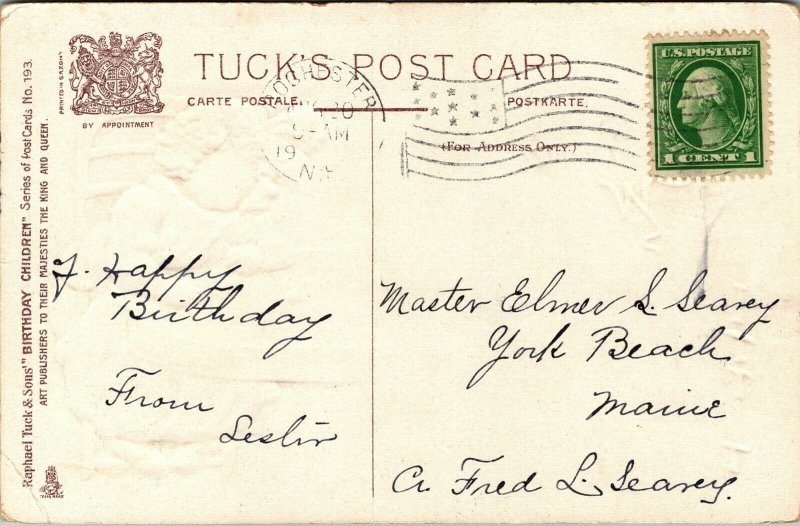 TUCK'S POST CARD
CARTE POSTALE.
POSTKARTE.
(FOR ADDRESS ONLY.)
PRINTED IN SAXONY
BY APPOINTMENT
Raphael Tuck & Sons' "BIRTHDAY CHILDREN" Series of Post Cards No. 193.
ART PUBLISHERS TO THEIR MAJESTIES THE KING AND QUEEN.
ROCHESTER
30
AM
19
N.H.
U.S. POSTAGE
1 CENT 1
Happy
Birthday
From
Master Elmer S. Seavey
York Beach
Maine
Fred L. Seavey.